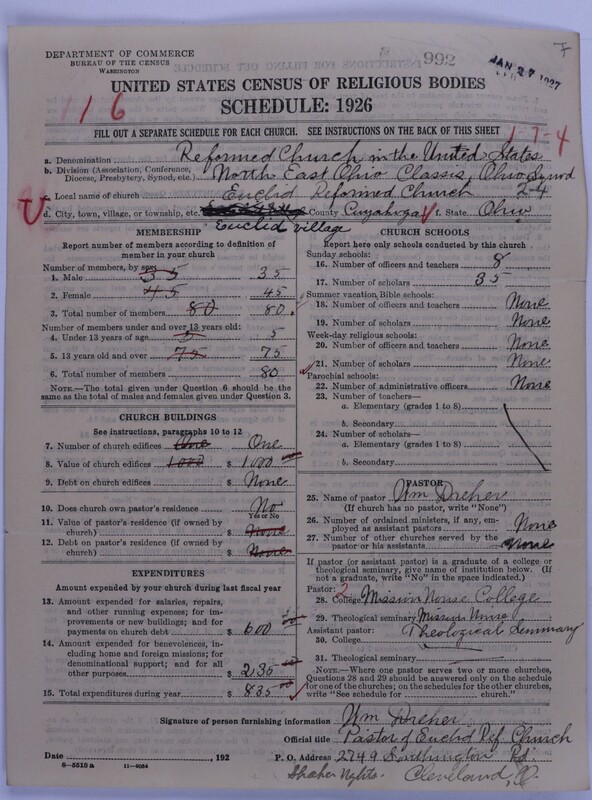 DEPARTMENT OF COMMERCE
BUREAU OF THE CENSUS
WASHINGTON
992
JAN 27 1927
7
UNITED STATES CENSUS OF RELIGIOUS BODIES
SCHEDULE: 1926
116
FILL OUT A SEPARATE SCHEDULE FOR EACH CHURCH. SEE INSTRUCTIONS ON THE BACK OF THIS SHEET
1-7-4
a. Denomination Reformed Church in the United States
b. Division (Association, Conference, Diocese, Presbytery, Synod, etc.) North East Ohio Classis, Ohio Synod
c. Local name of church Euclid Reformed Church 2-4
d. City, town, village, or township, etc. County Cuyahoga f. State Ohio
Euclid village
MEMBERSHIP
Report number of members according to definition of member in your church
Number of members, by sex:
1. Male 35 35
2. Female 45 45
3. Total number of members 80 80
Number of members under and over 13 years old:
4. Under 13 years of age 5 5
5. 13 years old and over 75 75
6. Total number of members 80
NOTE.—The total given under Question 6 should be the same as the total of males and females given under Question 3.
CHURCH BUILDINGS
See instructions, paragraphs 10 to 12
7. Number of church edifices One One
8. Value of church edifices 1000 $ 1000
9. Debt on church edifices $ None
10. Does church own pastor's residence? No
Yes or No
11. Value of pastor's residence (if owned by church) $ None
12. Debt on pastor's residence (if owned by church) $ None
EXPENDITURES
Amount expended by your church during last fiscal year
13. Amount expended for salaries, repairs, and other running expenses; for improvements or new buildings; and for payments on church debt $ 600
14. Amount expended for benevolences, including home and foreign missions; for denominational support; and for all other purposes $ 235
15. Total expenditures during year $ 835
CHURCH SCHOOLS
Report here only schools conducted by this church
Sunday schools:
16. Number of officers and teachers 8
17. Number of scholars 35
Summer vacation Bible schools:
18. Number of officers and teachers None
19. Number of scholars None
Week-day religious schools:
20. Number of officers and teachers None
21. Number of scholars None
Parochial schools:
22. Number of administrative officers None
23. Number of teachers—
a. Elementary (grades 1 to 8)
b. Secondary
24. Number of scholars—
a. Elementary (grades 1 to 8)
b. Secondary
PASTOR
25. Name of pastor Wm Dreher
(If church has no pastor, write "None")
26. Number of ordained ministers, if any, employed as assistant pastors None
27. Number of other churches served by the pastor or his assistants None
If pastor (or assistant pastor) is a graduate of a college or theological seminary, give name of institution below. (If not a graduate, write "No" in the space indicated.)
Pastor: 2
28. College Mission House College
29. Theological seminary Mission House
Assistant pastor: Theological Seminary
30. College
31. Theological seminary
NOTE.—Where one pastor serves two or more churches, Questions 28 and 29 should be answered only on the schedule for one of the churches; on the schedules for the other churches, write "See schedule for church."
Signature of person furnishing information Wm Dreher
Official title Pastor of Euclid Ref. Church
Date , 192 P. O. Address 2749 Southington Rd.
8—5518 a 11—9034 Shaker Hghts. Cleveland, O.